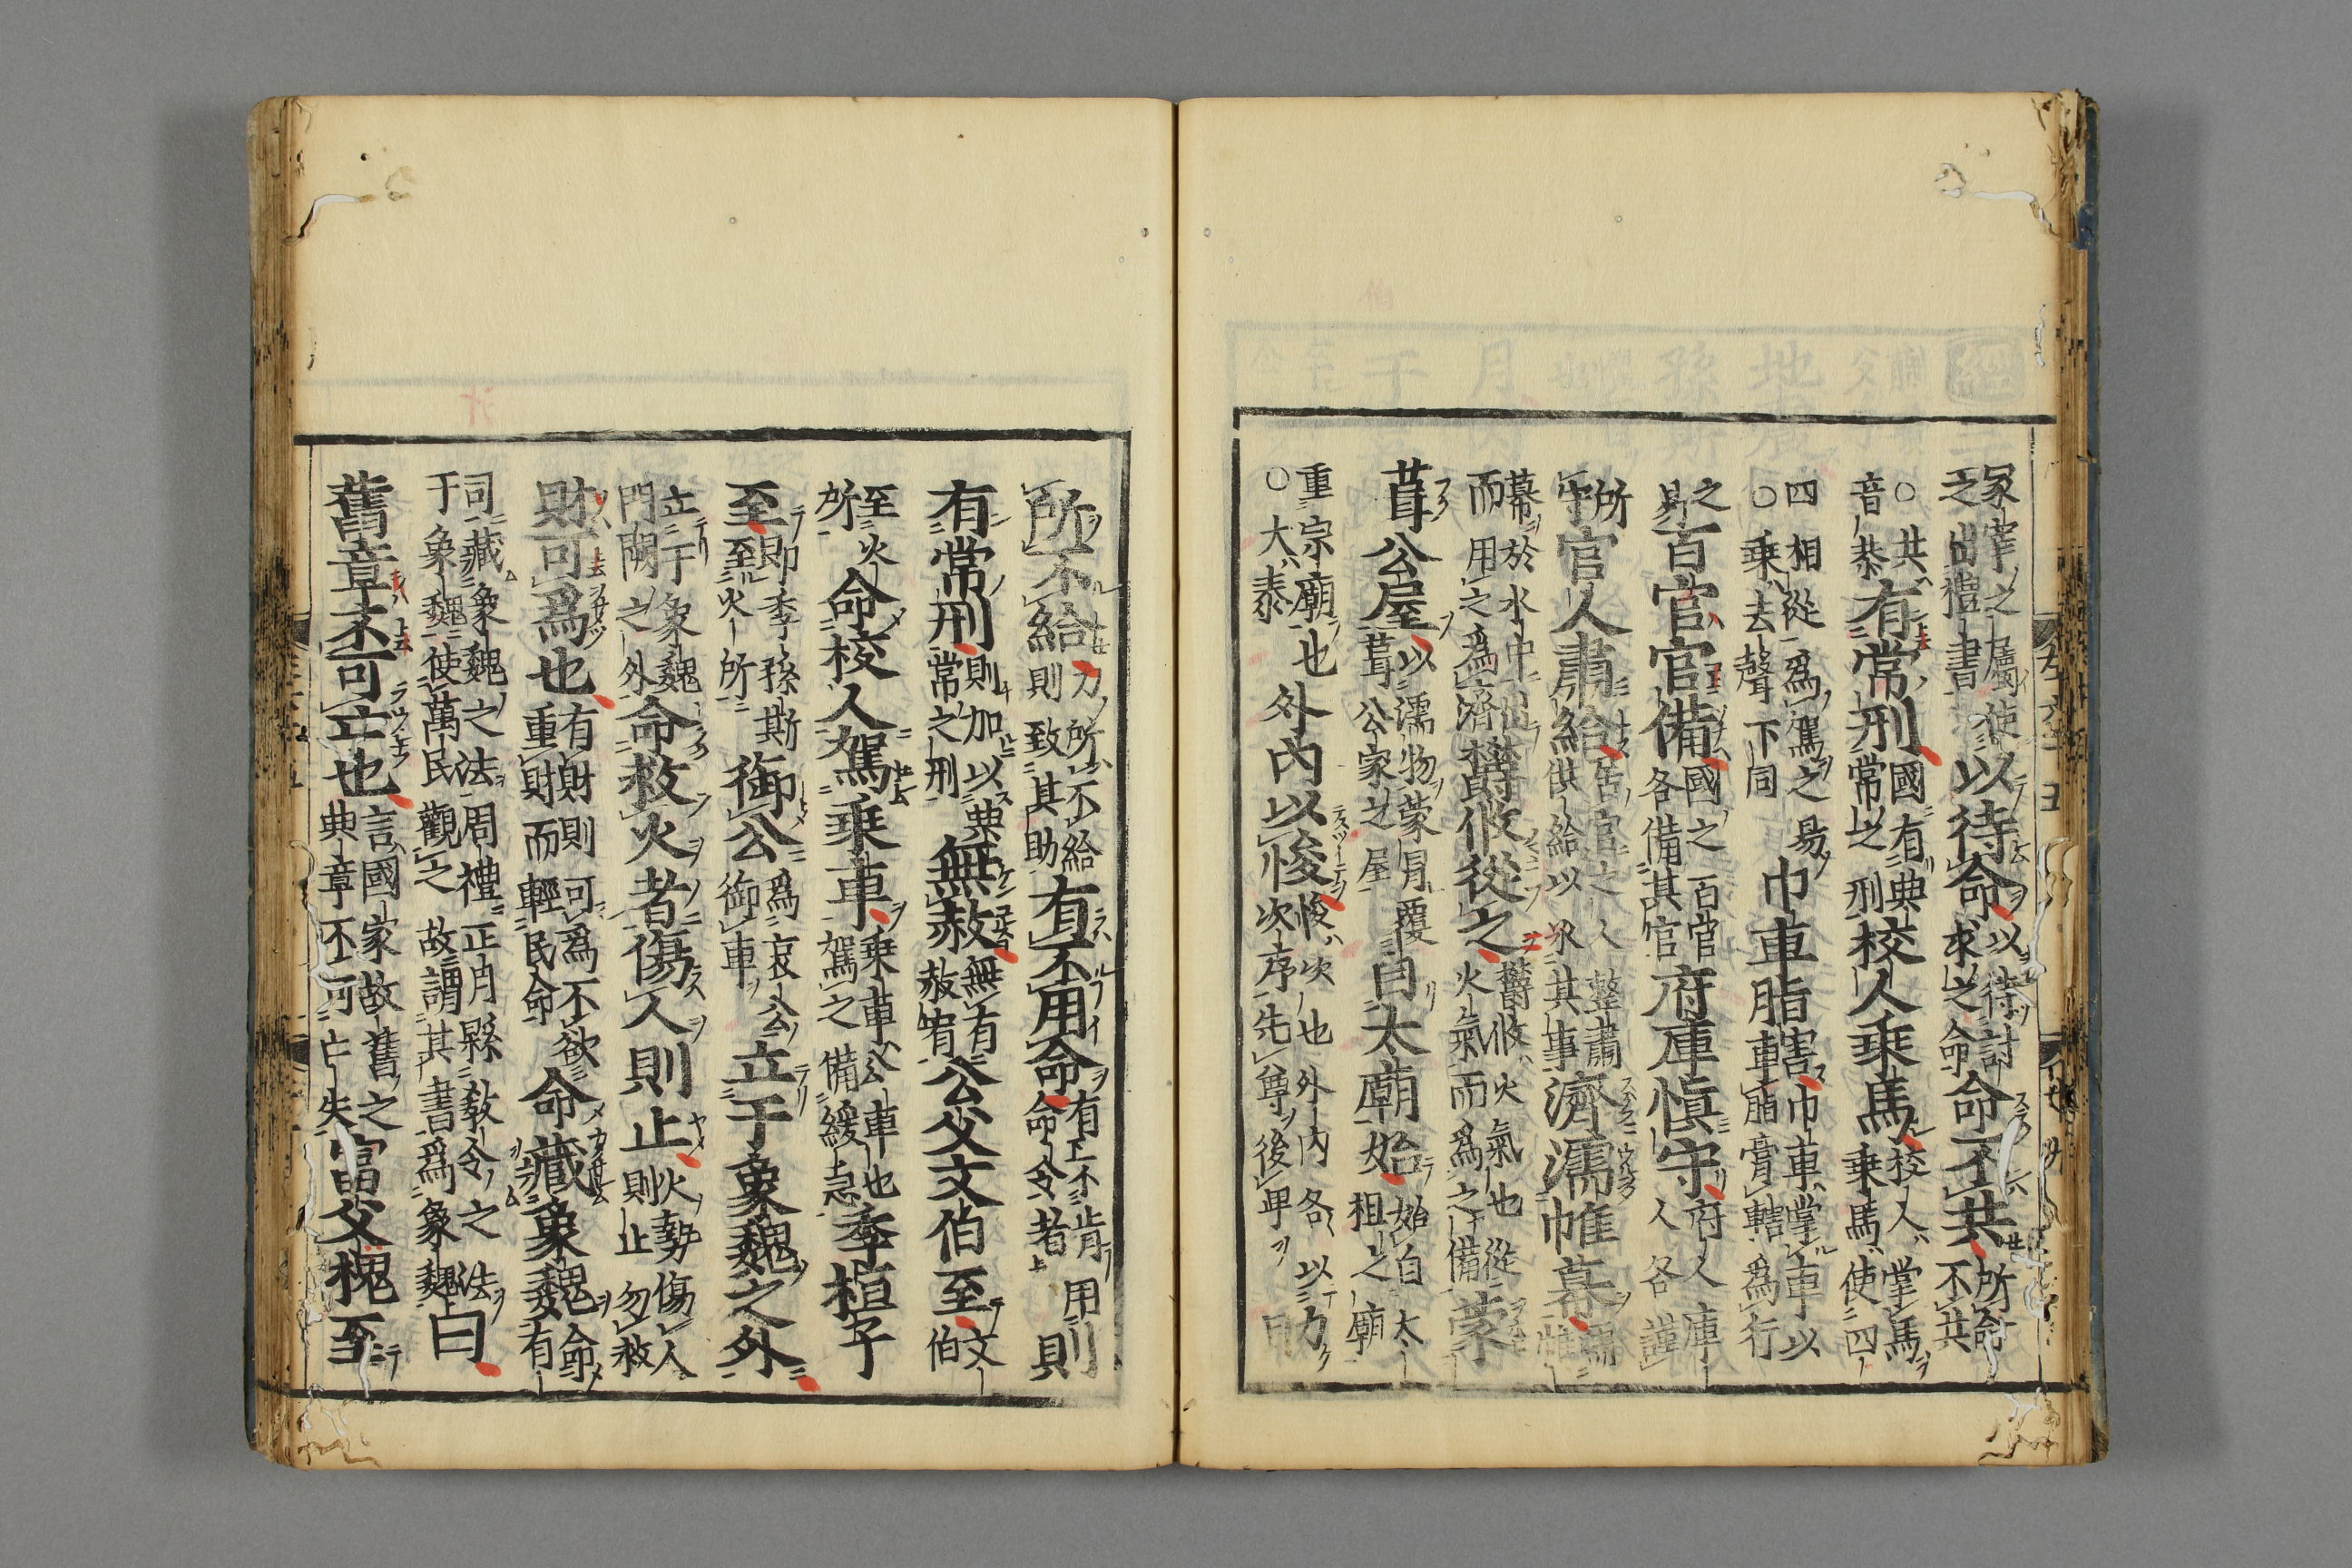 冢宰之屬使
之出禮書
以待命
以待討
求之命
命不共
所命
不共
○共
音恭
有常刑
國有典
常之刑
校人乘馬
校人掌馬
乘馬使四
四相從爲駕之易
○乘去聲下同
巾車脂轄
巾車掌車以
脂膏轄爲行
之
易
百官官備
國之百官
各備其官
府庫愼守
府人庫
人各謹
所
守
官人肅給
居官之人整肅
供給以承其事
濟濡帷幕
濡
帷
幕於水中出
而用之爲濟
鬱攸從之
鬱攸火氣也從
火氣而爲之備
蒙
葺公屋
以濡物蒙冐覆
葺公家之屋
自太廟始
始自太
祖之廟
重宗廟也
○大泰
外內以悛
悛次也外內各以力
次序先尊後𤰞
所不給
力所不給
則致其助
有不用命
有不肯用
命令者
則
有常刑
則加以典
常之刑
無赦
無有
赦宥
公父文伯至
文
伯
至火
所
命校人駕乘車
乘車公車也
駕之備緩急
季桓子
至
即季孫斯
至火所
御公
爲哀公
御車
立于象魏之外
立于象魏
門闕之外
命救火者傷人則止
火勢傷人
則止勿救
財可爲也
有財則可爲不欲
重財而輕民命
命藏象魏
命
有
司藏象魏之法周禮正月縣敎令之法
于象魏使萬民觀之故謂其書爲象魏
曰
舊章不可亡也
言國家故舊之
典章不可亡失
富父槐至